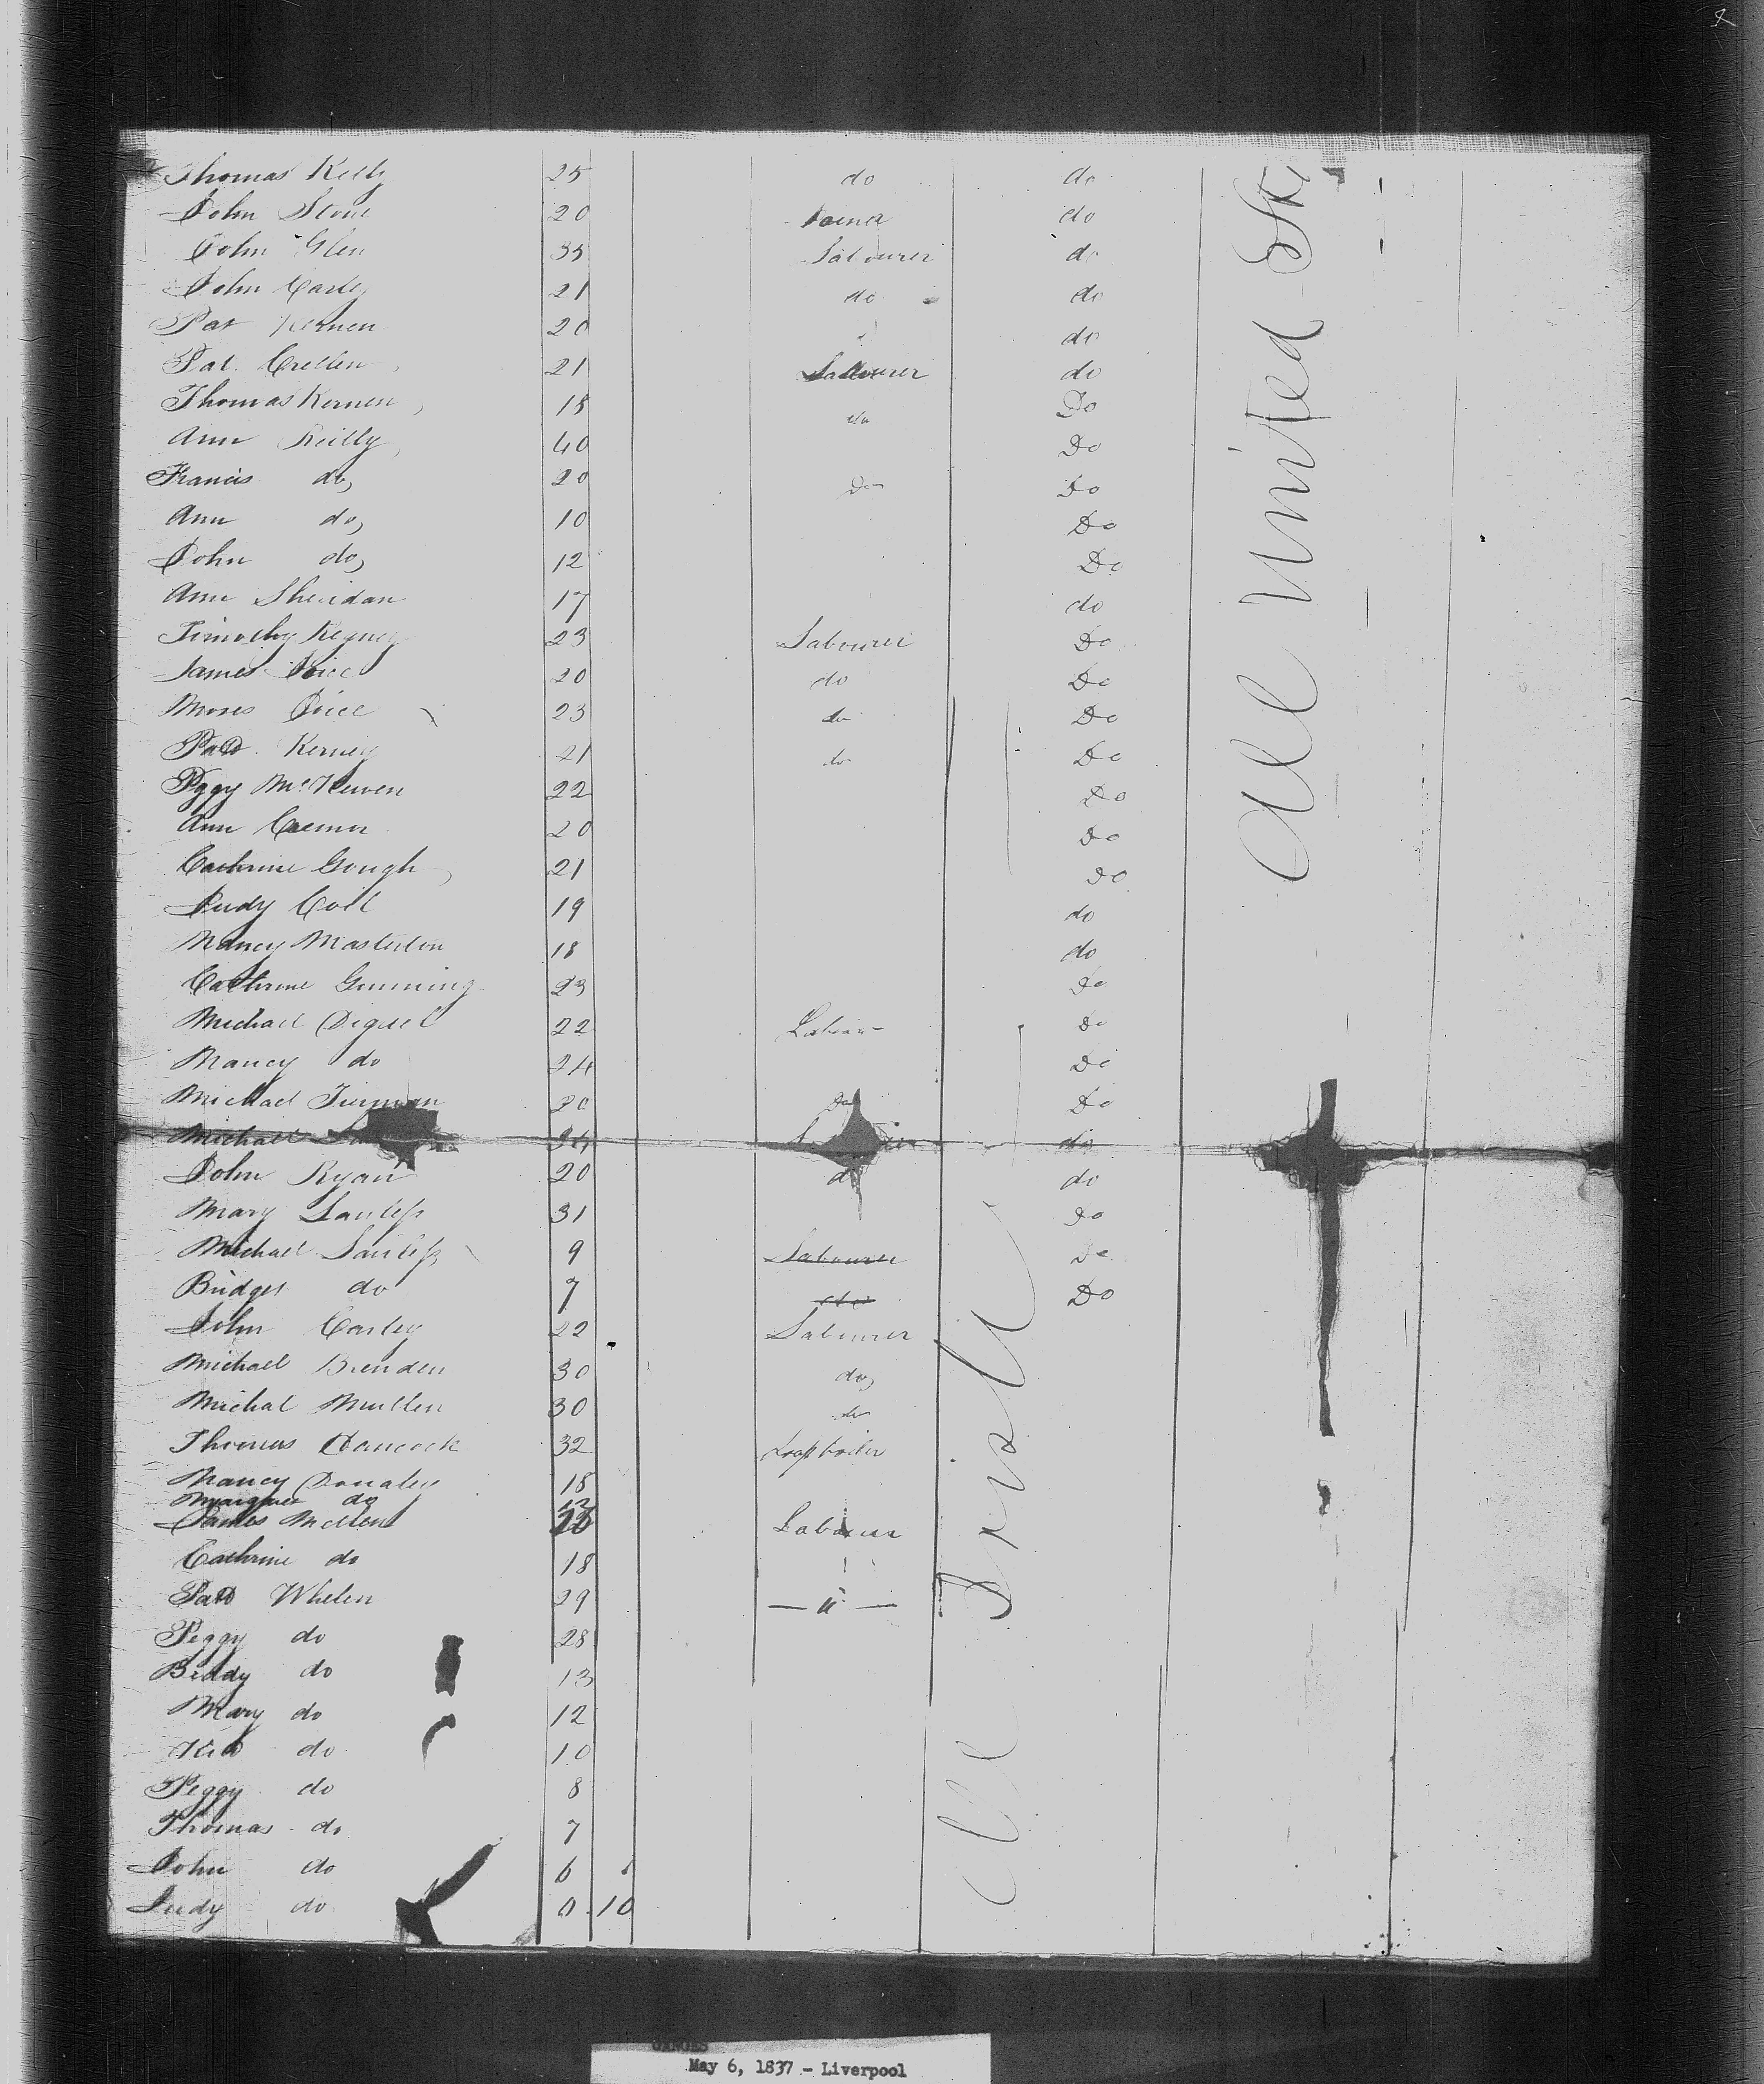 Thomas Kelly 25 do do
John Stone 20 do
John Glen 35 Labourer do
John Carley 21 do do
Pat Kernen 20 do
Pat. Crellen 21 Labourer do
Thomas Kernen 18 do Do
Ann Reilly 40 Do
Francis do, 20 Do Do
Ann do, 10 Do
John do, 12 Do
Ann Sheridan 17 do
Timothy 23 Labourer Do
James 20 do Do
Moses 23 do Do
Patt. Kerney 21 do Do
Pggy 22 Do
Ann 20 Do
Cathrine Gough 21 Do
Judy Coil 19 do
Nancy Masterton 18 do
Cathrine Gunning 23 Do
Michael 22 Labour Do
Nancy do 24 Do
Michael Tiernan 20 Do Do
Michael do
John Ryan 20 do do
Mary Lawless 31 Do
Michael Lawless 9 Labourer Do
Bridget do 7 do Do
John Carley 22 Labourer
Michael Brenden 30 do,
Michal Mullen 30 do
Thomas Hancock 32 Soap boiler
Nancy Donaley 18
Margret do 13
James Mellen Labourer
Cathrine do 18
Patt Whelen 29 — " —
Peggy do 28
Biddy do 13
Mary do 12
do 10
Peggy do 8
Thomas do 7
John do 6
Judy do 0 10
All United Sta
All Irish
May 6, 1837 - Liverpool